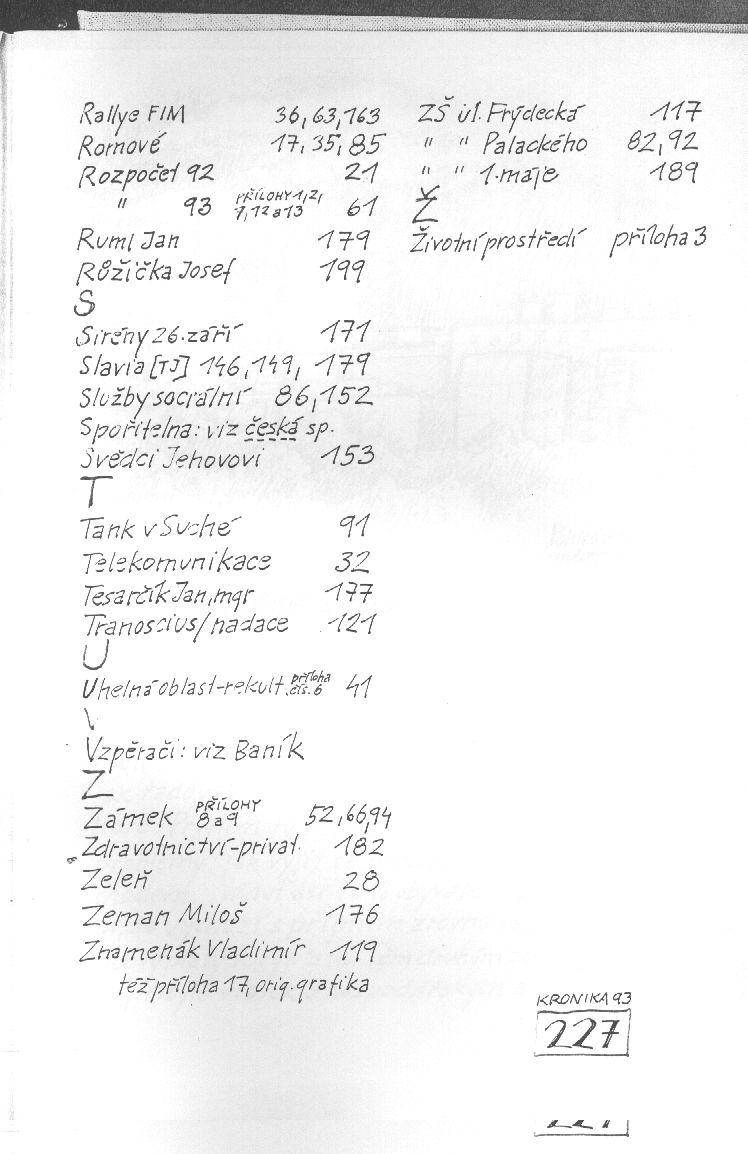 Rallye FIM 36, 63, 163
Romové 17, 35, 85
Rozpočet 92 21
" 93 PŘÍLOHY 1, 2, 7, 12 a 13 61
Ruml Jan 179
Růžička Josef 199
S
Sirény 26. září 171
Slavia [TJ] 146, 149, 179
Služby sociální 86, 152
Spořitelna: viz česká sp.
Svědci Jehovovi 153
T
Tank v Suché 91
Telekomunikace 32
Tesarčík Jan, mgr 177
Tranoscius/nadace 121
U
Uhelná oblast-rekult. příloha čís. 6 41
V
Vzpěrači: viz Baník
Z
Zámek PŘÍLOHY 8 a 9 52, 66, 94
Zdravotnictví-privat. 182
Zeleň 28
Zeman Miloš 176
Znamenák Vladimír 119
též příloha 17, orig. grafika
ZŠ ul. Frýdecká 117
" " Palackého 82, 92
" " 1. máje 189
Ž
Životní prostředí příloha 3
KRONIKA 93
227